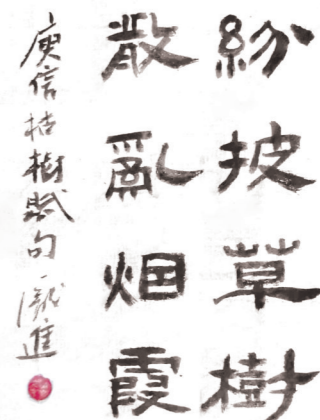 紛披草樹
散亂烟霞
庾信枯樹賦句